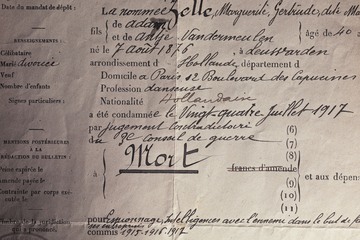 Date du mandat de dépôt :
La nommée Zelle, Marguerite, Gertrude, dite Mata
fils de Adam
et de Antje Vandermeulen âgé de 40
né le 7 Août 1876 à Leeuwarden
arrondissement d Hollande, département d
Domicile à Paris 12 Boulevard des Capucines
Profession danseuse
Nationalité Hollandaise
a été condamnée le Vingt-quatre juillet 1917
par jugement contradictoire (6)
du 3e Conseil de guerre (7)
à { Mort (8)
francs d'amende } et aux dépens
(9)
(10)
(11)
pour Espionnage, Intelligences avec l'ennemi dans le but de
ses entreprises
commis 1915-1916-1917
RENSEIGNEMENTS.
Célibataire
Marié divorcée
Veuf
Nombre d'enfants
Signes particuliers :
MENTIONS POSTÉRIEURES
À LA
RÉDACTION DU BULLETIN